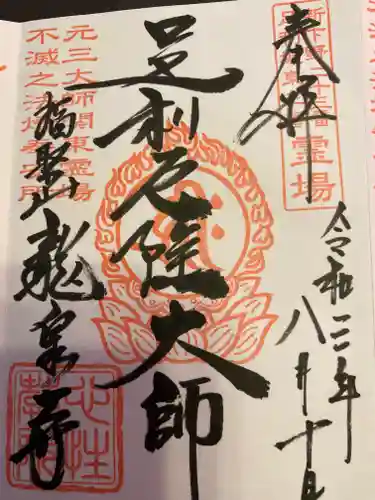 奉拝
霊場
令和三年
八月十日
足利厄除大師
元三大師関東霊場
不滅之法灯奉安所
福聚山龍泉寺